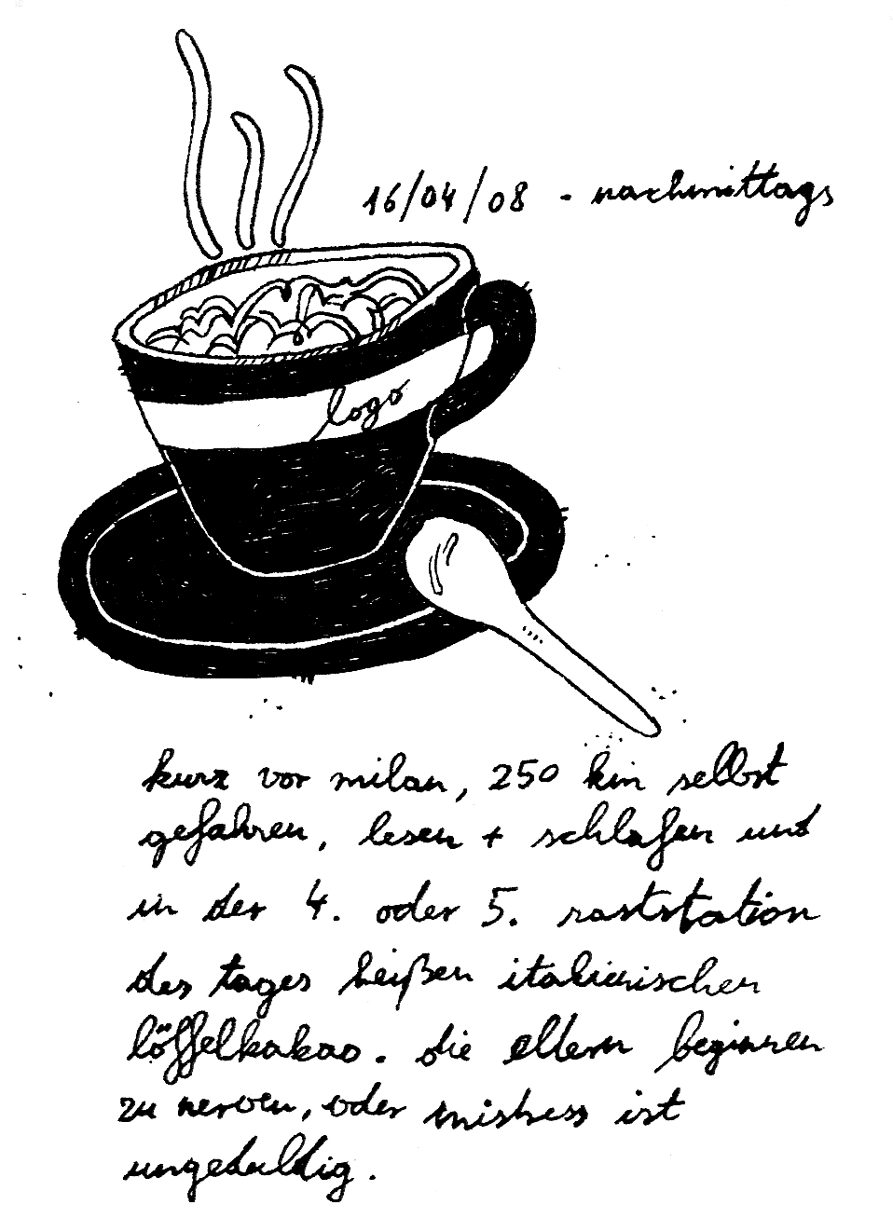 16/04/08 - nachmittags
logo
kurz vor milan, 250 km selbst
gefahren, lesen + schlafen und
in der 4. oder 5. raststation
des tages heißen italienischen
löffelkakao. die eltern beginnen
zu nerven, oder mistress ist
ungeduldig.